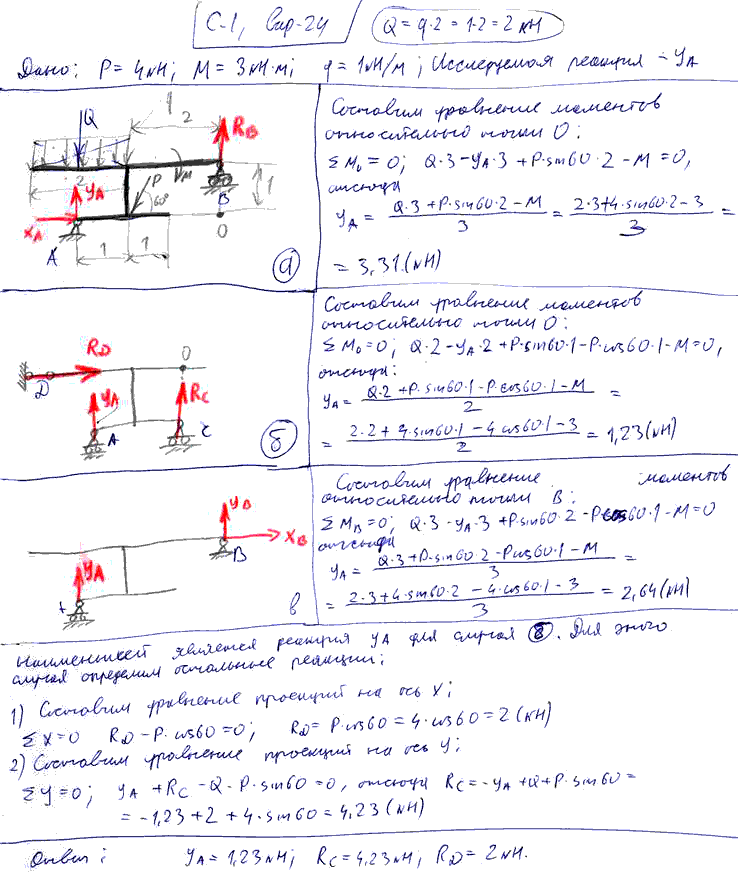 С-1, Вар-24
Q = q·2 = 1·2 = 2 кН
Дано: P = 4кН; M = 3кН·м; q = 1кН/м; Исследуемая реакция - YA
Q
2
RB
2
YA
P
M
60°
1
B
XA
A
1
1
O
а
Составим уравнение моментов
относительно точки O:
ΣMo = 0; Q·3 - YA·3 + P·sin60·2 - M = 0,
отсюда
YA = (Q·3 + P·sin60·2 - M)/3 = (2·3+4·sin60·2-3)/3 =
= 3,31 (кН)
RD
D
O
YA
RC
A
C
б
Составим уравнение моментов
относительно точки O:
ΣMo=0; Q·2 - YA·2 + P·sin60·1 - P·cos60·1 - M = 0,
отсюда:
YA = (Q·2 + P·sin60·1 - P·cos60·1 - M)/2 =
= (2·2 + 4·sin60·1 - 4cos60·1 - 3)/2 = 1,23 (кН)
YB
XB
B
YA
в
Составим уравнение моментов
относительно точки B:
ΣMB=0; Q·3 - YA·3 + P·sin60·2 - Pcos60·1 - M = 0
отсюда
YA = (Q·3 + P·sin60·2 - Pcos60·1 - M)/3 =
= (2·3+4·sin60·2 - 4·cos60·1 - 3)/3 = 2,64 (кН)
Наименьшей является реакция YA для случая б. Для этого
случая определим остальные реакции:
1) Составим уравнение проекций на ось X:
ΣX=0 RD - P·cos60=0; RD = P·cos60 = 4·cos60 = 2 (кН)
2) Составим уравнение проекций на ось Y:
ΣY=0; YA + RC - Q - P·sin60=0, отсюда RC = -YA + Q + P·sin60 =
= -1,23 + 2 + 4·sin60 = 4,23 (кН)
Ответ: YA = 1,23кН; RC = 4,23кН; RD = 2кН.